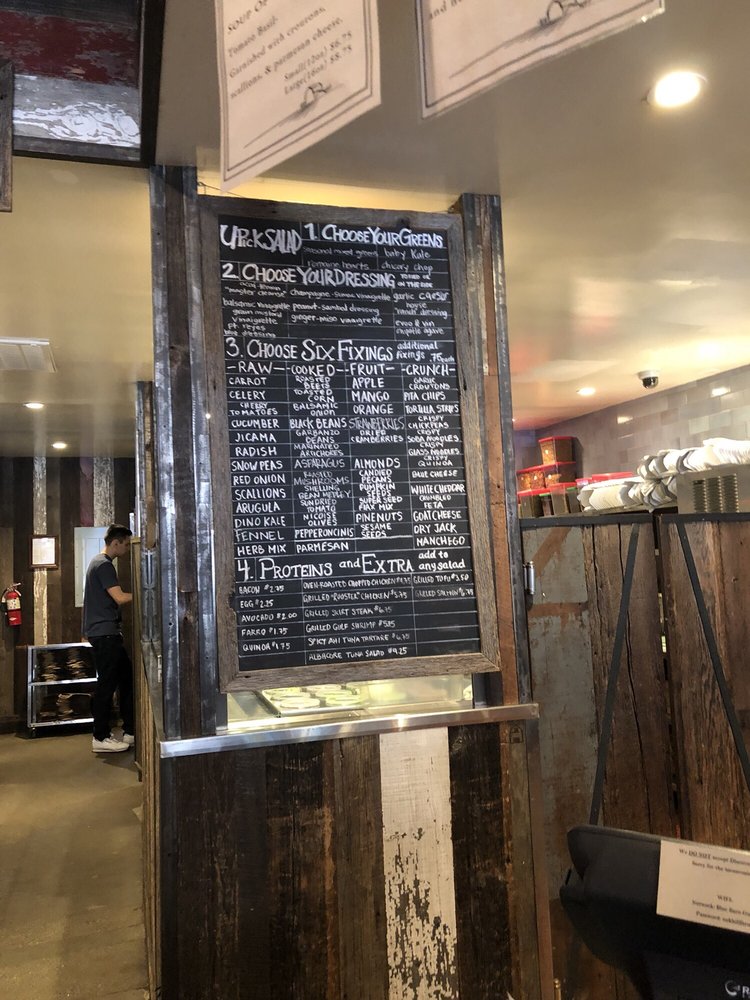 SOUP OF
Tomato Basil:
Garnished with croutons,
scallions, & parmesan cheese.
Small(12oz) $6.75
Large(16oz) $8.75
and
UPick SALAD
1. CHOOSE YOUR GREENS
seasonal mixed greens baby Kale
romaine hearts chicory chop
2. CHOOSE YOUR DRESSING TOSSED OR ON THE SIDE
acai-lemon "master cleanse" champagne-sumac vinaigrette garlic caesar
balsamic vinaigrette peanut-sambal dressing house ranch dressing
grain mustard vinaigrette ginger-miso vinaigrette evoo & vin
pt. reyes blue dressing chipotle agave
3. CHOOSE SIX FIXINGS additional fixings .75 each
-RAW- -COOKED- -FRUIT- -CRUNCH-
CARROT
CELERY
CHERRY TOMATOES
CUCUMBER
JICAMA
RADISH
SNOW PEAS
RED ONION
SCALLIONS
ARUGULA
DINO KALE
FENNEL
HERB MIX
ROASTED BEETS
TOASTED CORN
BALSAMIC ONION
BLACK BEANS
GARBANZO BEANS
MARINATED ARTICHOKES
ASPARAGUS
ROASTED MUSHROOMS
SHELLING BEAN MEDLEY
SUNDRIED TOMATO
NICOISE OLIVES
PEPPERONCINIS
PARMESAN
APPLE
MANGO
ORANGE
STRAWBERRIES
DRIED CRANBERRIES
ALMONDS
CANDIED PECANS
PUMPKIN SEEDS
SUPER SEED FLAX MIX
PINENUTS
SESAME SEEDS
GARLIC CROUTONS
PITA CHIPS
TORTILLA STRIPS
CRISPY CHICKPEAS
CRISPY SOBA NOODLES
CRISPY GLASS NOODLES
CRISPY QUINOA
BLUE CHEESE
WHITE CHEDDAR
CRUMBLED FETA
GOAT CHEESE
DRY JACK
MANCHEGO
4. PROTEINS and EXTRA add to any salad
BACON $2.75
EGG $2.25
AVOCADO $2.00
FARRO $1.75
QUINOA $1.75
OVEN-ROASTED CHOPPED CHICKEN
GRILLED "ROOSTER" CHICKEN $3.75
GRILLED SKIRT STEAK
GRILLED GULF SHRIMP
SPICY AHI TUNA TARTARE
ALBACORE TUNA SALAD $4.25
GRILLED TOFU $3.50
GRILLED SALMON
We DO NOT accept
Sorry for the
WIFI:
Network: Blue Barn
Password: